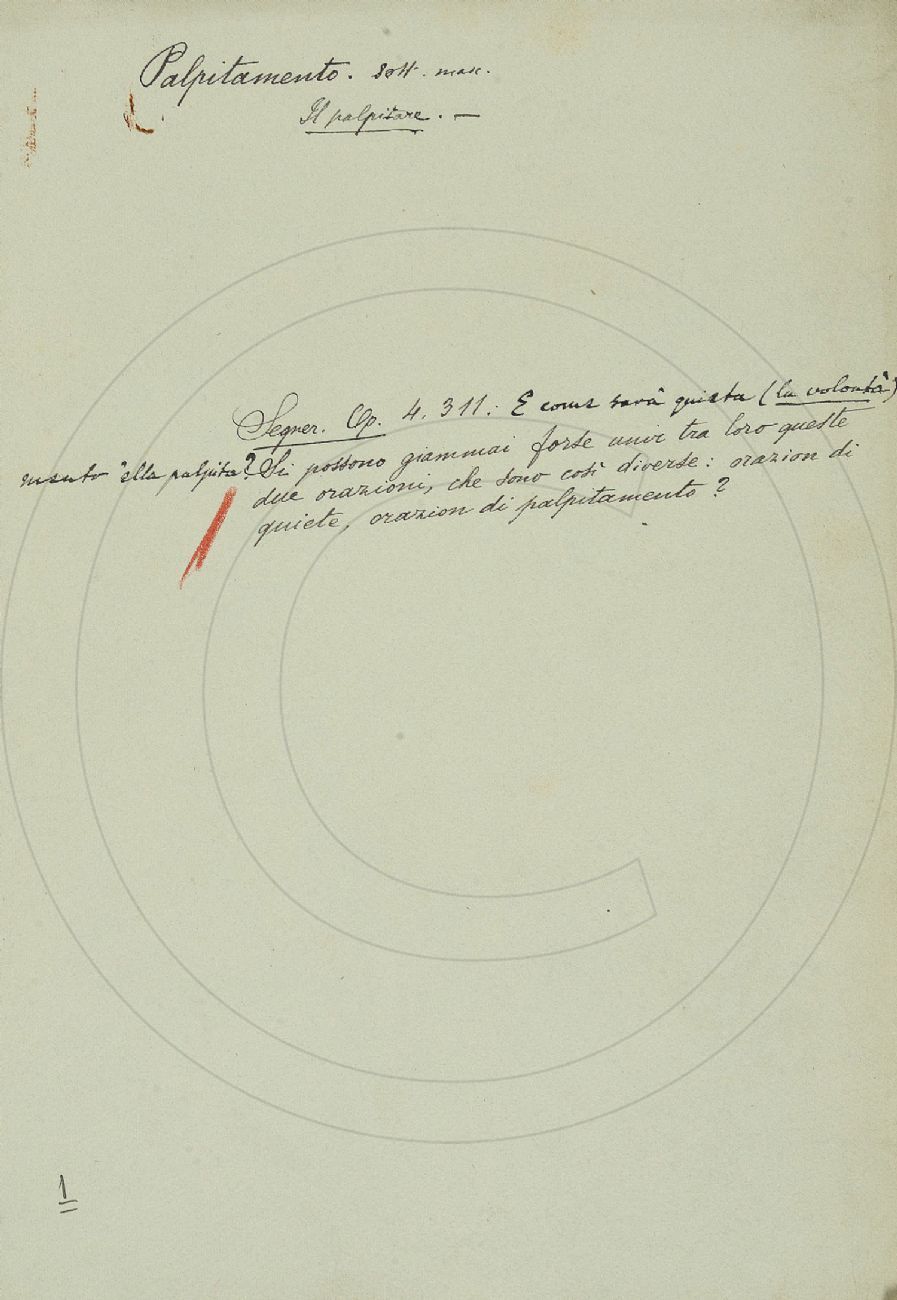 Palpitamento. Sost. masc.
Il palpitare. —
Segner. Op. 4. 311. E come sarà quieta (la volontà)
mentr' ella palpita? Si possono giammai forse unir tra loro queste
due orazioni, che sono così diverse: orazion di
quiete, orazion di palpitamento?
1